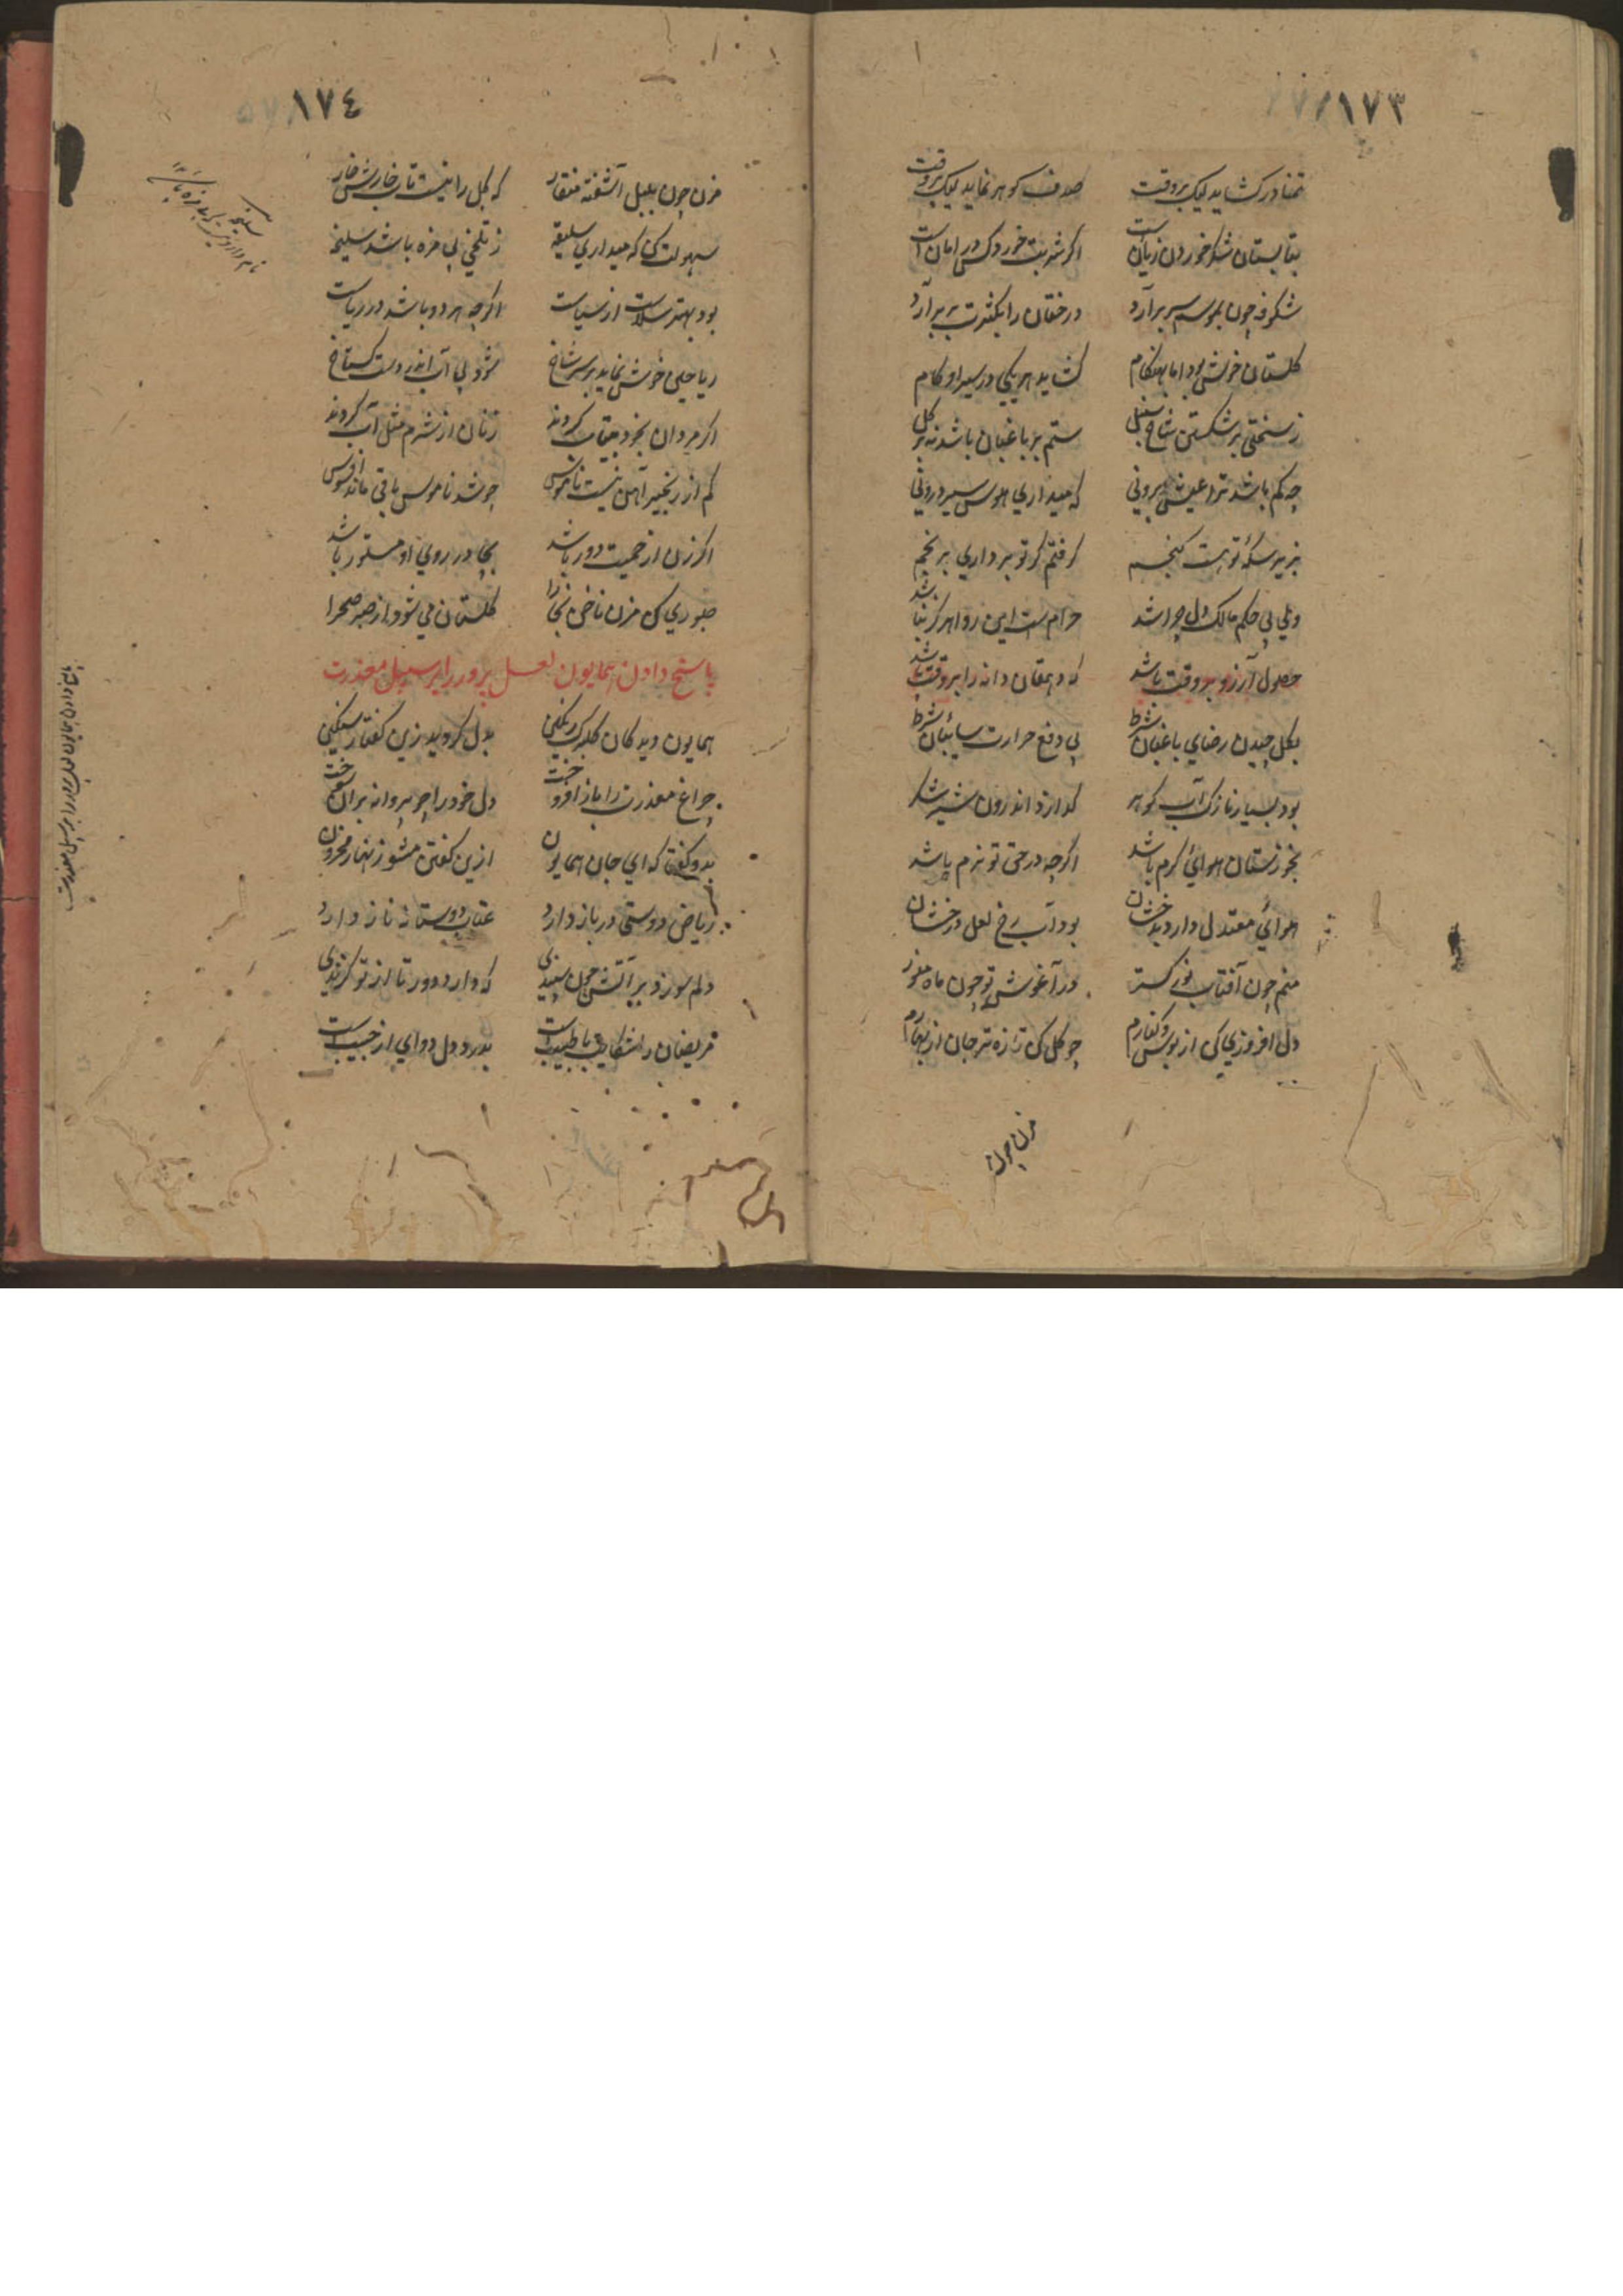 ١٧٣
تمنا در کشاید لیک بر وقت صدف کوهر نماید لیک بر وقت
بتابستان شکر خوردن زیانست اکر شربت خورد کس در امانست
شکوفه چون بموسم سر برآرد درختان را بکثرت بر برآرد
کلستان خوش بود اما بهنکام کشاید هر یکی در سیر او کام
ز سختی بر شکستن شاخ سنبل ستم بر باغبان باشد نه بر کل
چه کم باشد ترا عیش برونی که میداری هوس سیر درونی
بزیر سکه تو هست کنجم کرفتم کر تو برداری برنجم
ولی بی حکم مالک دل چرا شد حرامست این روا هرکز نباشد
حصول آرزو بر وقت باشد که دهقان دانه را بر وقت باشد
بکل چیدن رضای باغبان شرط پی دفع حرارت سائبان شرط
بود بسیار نازک آب کوهر کدازد اندرون شیر شکر
بخوزستان هوائی کرم باشد اکرچه در حق تو نرم باشد
هوائی معتدل دارد بدخشان بود آب رخ لعل درخشان
منم چون آفتاب نور کستر در آغوش تو چون ماه منور
دل افروزی کن از بوس و کنارم چو کل کن تازه تر جان از بهارم
مزن چون
١٧٤
مزن چون بلبل آشفته منقار که کل را نیست تاب خارش خار
سهولت کن که میداری سلیقه ز تلخی بی مزه باشد سلیخه
بود بهتر سلاست از سیاست اکرچه هر دو باشد در ریاست
ریاحین خوش نماید بر سر شاخ شود بی آب اندر دست کستاخ
اکر مردان بخود بیتاب کردند زنان از شرم مثل آب کردند
کم از زنجیر آهن نیست ناموس چو شد ناموس باقی ماند افسوس
اکر زن از حمیت دور باشد بچادر روی او مستور باشد
صبوری کن مزن ناخن بخارا کلستان می شود از صبر صحرا
پاسخ دادن همایون لعل پرور را بر سبیل معذرت
همایون دید کان کلبرک رنکین بدل کردید زین کفتار سنکین
چراغ معذرت را باز افروخت دل خود را چو پروانه بران سوخت
بدو کفتا که ای جان همایون ازین کفتن مشو زنهار محزون
ریاض دوستی در باز دارد عتاب دوستان ناز دارد
دلم سوزد بر آتش چون سپندی که دارد دور تا از تو کزندی
مریضان را شکایت با طبیبست بدرد دل دوای از حبیبست